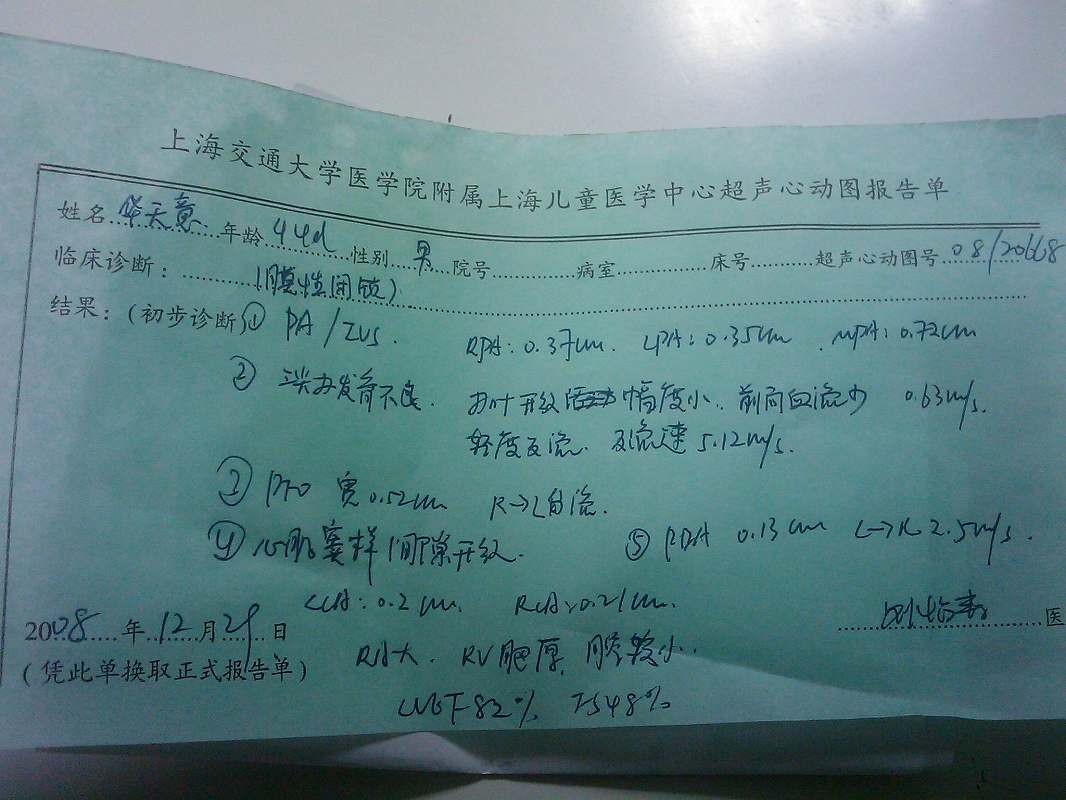 上海交通大学医学院附属上海儿童医学中心超声心动图报告单
姓名 华天意 年龄 44d 性别 男 院号 病室 床号 超声心动图号 08/20668
临床诊断: (膜性闭锁)
结果:(初步诊断) ① PA/IVS. RPA: 0.37cm. LPA: 0.35cm. MPA: 0.72cm
② 三尖瓣发育不良. 瓣叶开放活动幅度小. 前向血流少 0.63m/s.
轻度反流. 反流速 5.12m/s.
③ PFO 宽 0.52cm R→L分流.
④ 心肌窦样间隙开放. ⑤ PDA 0.13cm L→R 2.5m/s.
LCA: 0.2cm. RCA: 0.21cm.
2008 年 12 月 29 日 医
(凭此单换取正式报告单) RA大. RV肥厚, 腔较小.
LVEF 82% FS48%